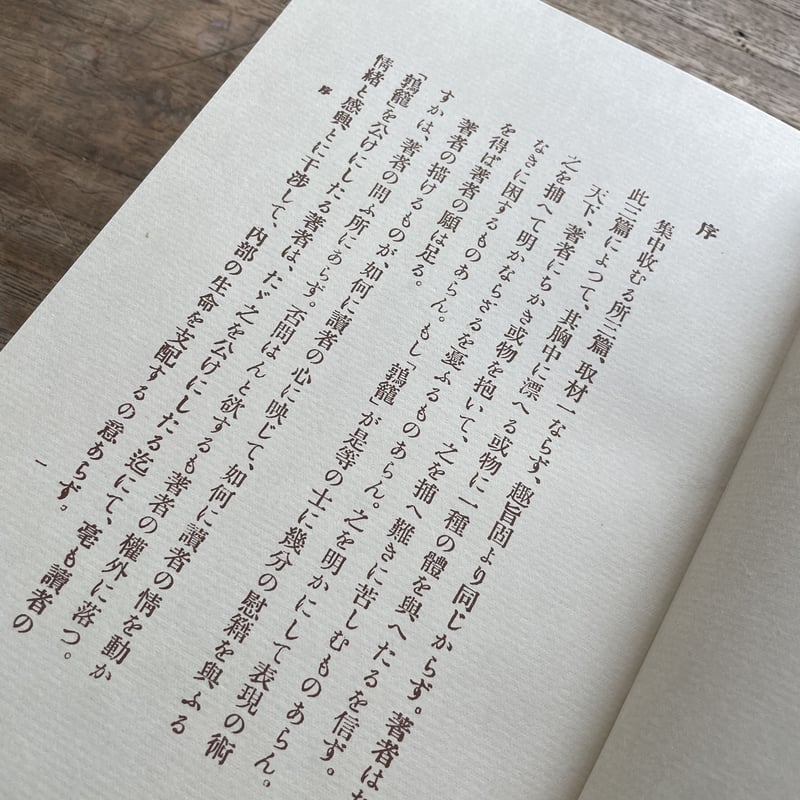 序
集中收むる所三篇、取材一ならず、趣旨固より同じからず。著者は
此三篇によつて、其胸中に漂へる或物に一種の體を與へたるを信ず。
天下、著者にちかき或物を抱いて、之を捕へ難きに苦しむものあらん。
之を捕へて明かならざるを憂ふるものあらん。之を明かにして表現の術
なきに困するものあらん。もし「鶉籠」が是等の士に幾分の慰籍を與ふる
を得ば著者の願は足る。
著者の描けるものが、如何に讀者の心に映じて、如何に讀者の情を動か
すかは、著者の問ふ所にあらず。否問はんと欲するも著者の權外に落つ。
「鶉籠」を公けにしたる著者は、たゞ之を公けにしたる迄にて、毫も讀者の
情緒と感興とに干渉して、内部の生命を支配するの意あらず。
序
一